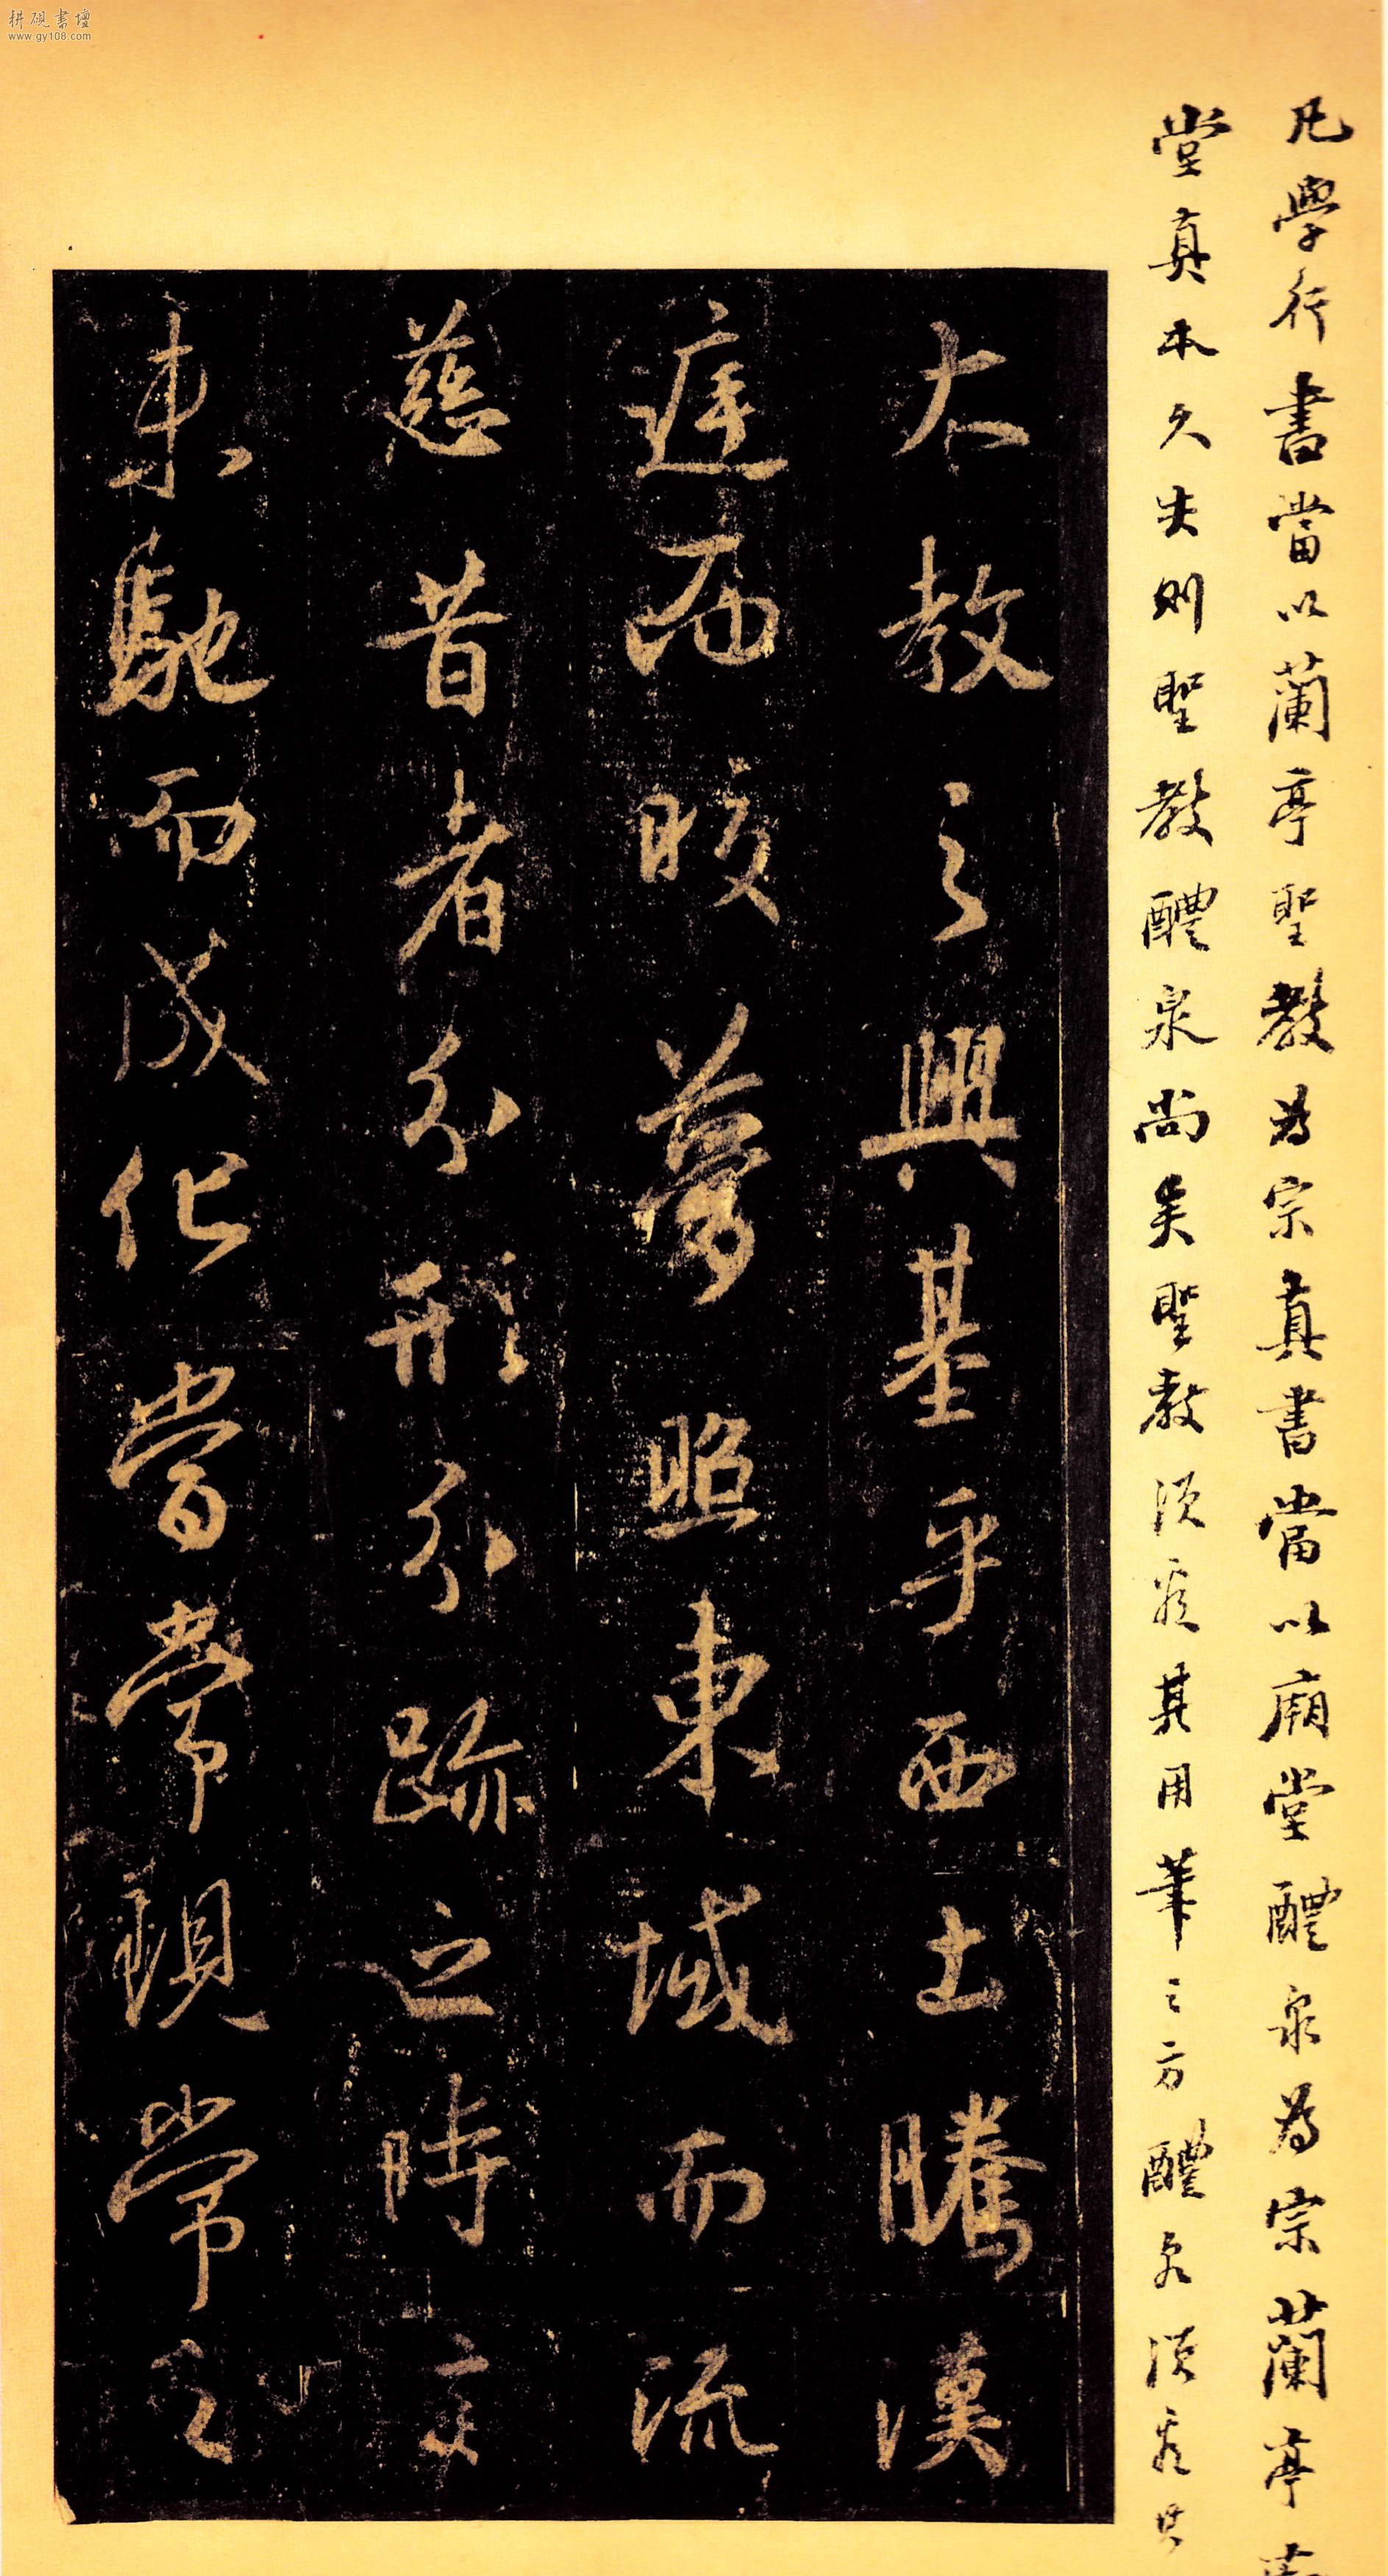 凡學行書當以蘭亭聖教為宗真書當以廟堂醴泉為宗蘭亭
堂真本久失則聖教醴泉尚矣聖教須看其用筆之方醴泉須看其
大教之興基乎西土騰漢
庭而皎夢照東域而流
慈昔者分形分跡之時言
未馳而成化當常現常之
耕硯書壇
www.gy108.com